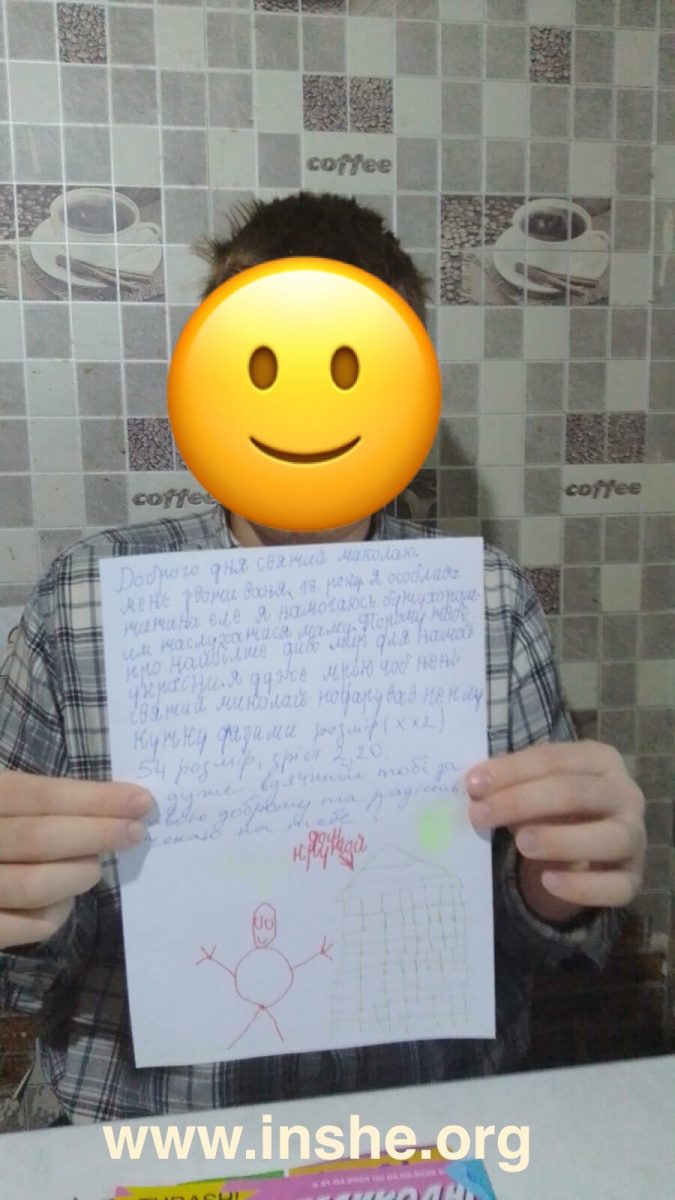 coffee
coffee
coffee
Доброго дня святий миколаю.
мене звоти ваня, 18 року я особлава
але я намогаюсь бути
маму. Тому
про найбілше диво мир для нашой
україни. я дуже мрію чоб мені
святий миколай подарував
куртку розмір (xx2)
54 розмір, зріст 2,20.
дуже вдячний тобі за
твою доброту та радість
чекаю на тебе!
дом
www.inshe.org